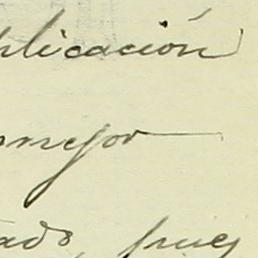 plicación
mejor
ado, pues